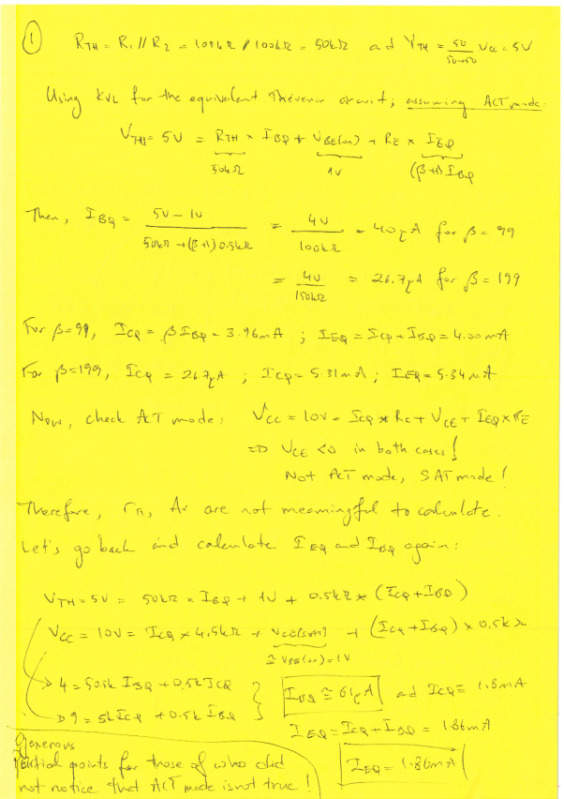 ①
R_TH = R₁ // R₂ = 100kΩ // 100kΩ = 50kΩ and V_TH = 50/(50+50) V_CC = 5V
Using KVL for the equivalent Thévenin circuit; assuming ACT mode.
V_TH = 5V = R_TH × I_BQ + V_BE(on) + R_E × I_EQ
50kΩ 1V (β+1) I_BQ
Then, I_BQ = (5V - 1V)/(50kΩ + (β+1) 0.5kΩ) = 4V/100kΩ = 40μA for β = 99
= 4V/150kΩ = 26.7μA for β = 199
For β=99, I_CQ = β I_BQ = 3.96mA ; I_EQ = I_CQ + I_BQ = 4.00mA
For β=199, I_CQ = 26.7μA ; I_CQ = 5.31mA ; I_EQ = 5.34mA
Now, check ACT mode: V_CC = 10V = I_CQ × R_C + V_CE + I_EQ × R_E
⇒ V_CE < 0 in both cases!
Not ACT mode, SAT mode!
Therefore, r_π, Av are not meaningful to calculate.
Let's go back and calculate I_EQ and I_BQ again:
V_TH = 5V = 50kΩ × I_BQ + 1V + 0.5kΩ × (I_CQ + I_BQ)
V_CC = 10V = I_CQ × 4.5kΩ + V_CE(sat) + (I_CQ + I_BQ) × 0.5kΩ
≅ V_BE(on) = 1V
→ 4 = 50.5k I_BQ + 0.5k I_CQ } I_BQ ≅ 61μA and I_CQ = 1.8mA
→ 9 = 5k I_CQ + 0.5k I_BQ } I_EQ = I_CQ + I_BQ = 1.86mA
I_EQ = 1.86mA
Generous
Partial points for those of who did
not notice that ACT mode is not true!